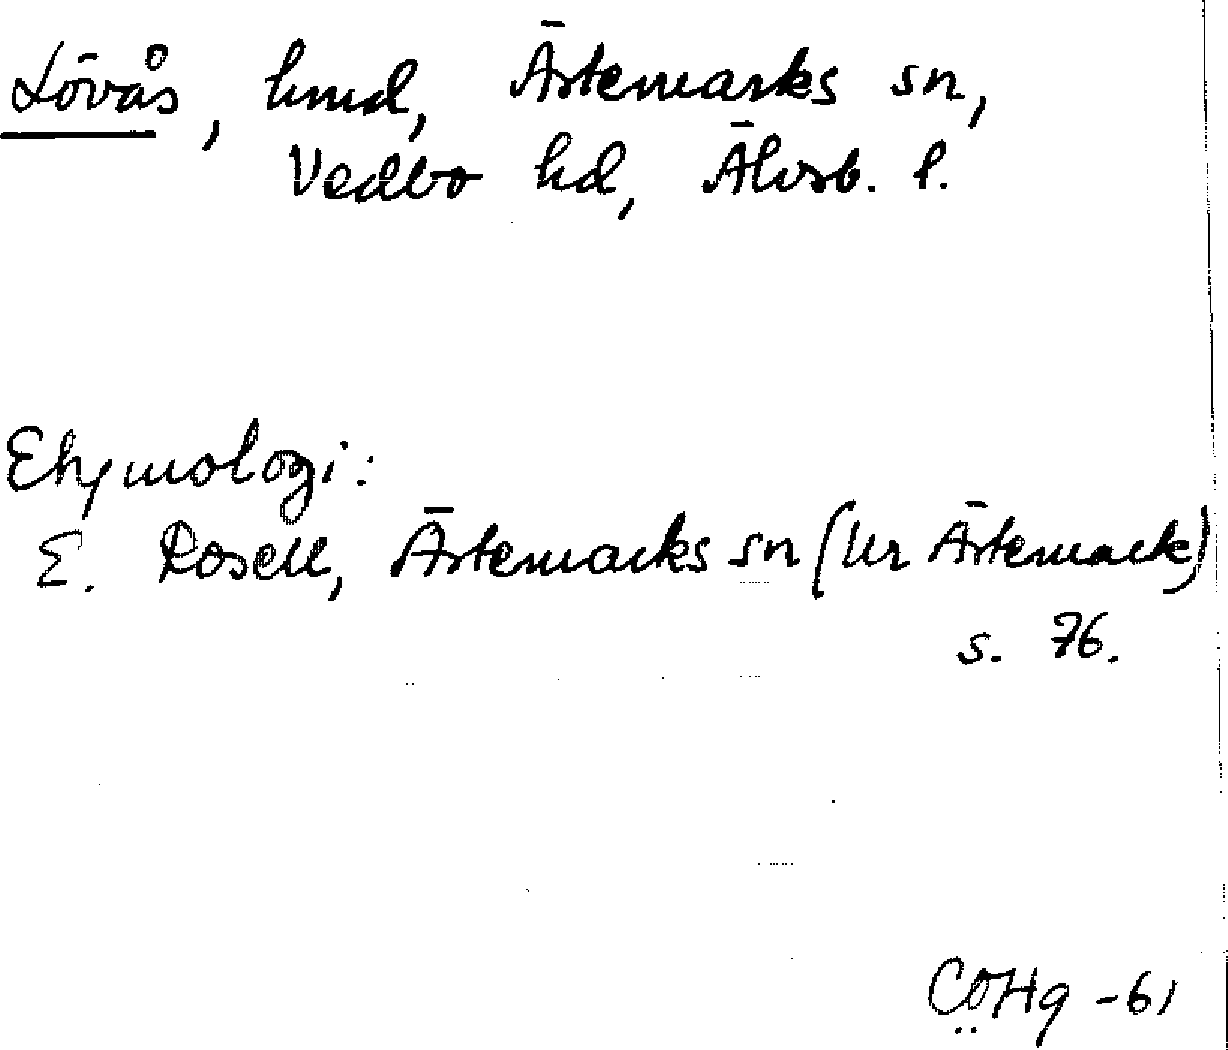 Lövås, hmd, Ärtemarks sn,
Vedbo hd, Älvsb. l.
Etymologi:
E. Rosell, Ärtemarks sn (Ur Ärtemark)
s. 76.
CÖHg -61